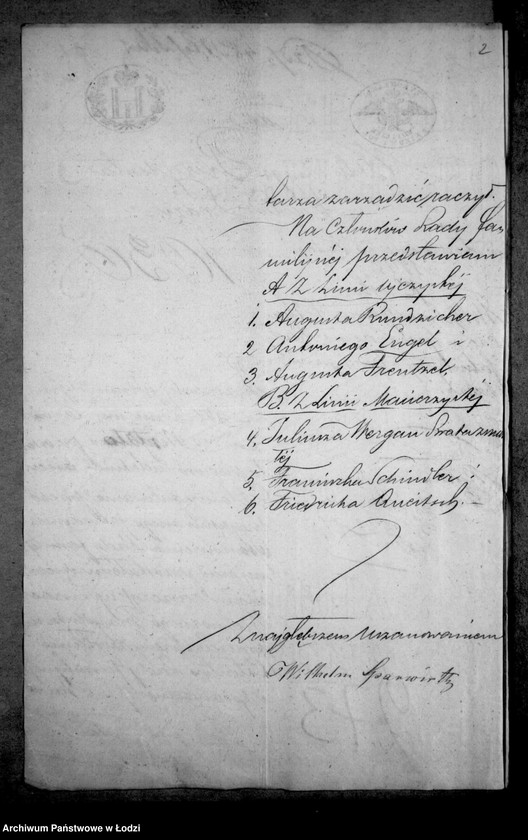 2
tarza zarządzić raczył.
Na Członków Rady fa-
milijnéj przedstawiam
A Z Linii ojczystéj
1. Augusta Rundzieher
2 Antoniego Engel i
3. Augusta Frentzel
B. Z Linii Macierzystéj
4. Juliusza Wergau
téj
5. Franciszka Schindler i
6. Friedricha
Z najgłębszem uszanowaniem
Wilhelm
Archiwum Państwowe w Łodzi